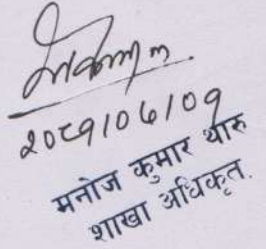 २०८१०६१०९
मनोज कुमार थारु
शाखा अधिकृत.